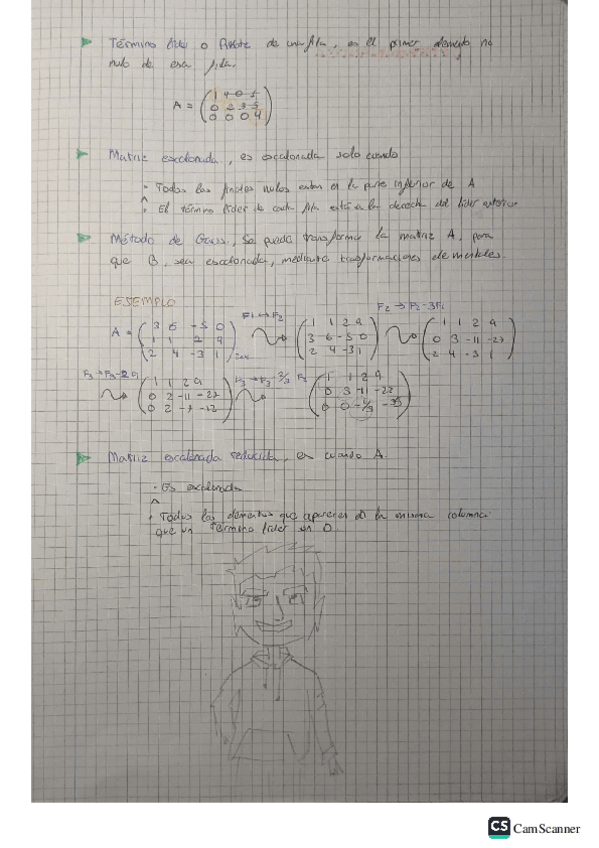 Término líder o Pivote de una fila, es el primer elemento no
nulo de esa fila.
A = ( 1 4 0 5
0 2 3 5
0 0 0 4 )
Matriz escalonada, es escalonada solo cuando
· Todos los nulos estan en la parte inferior de A
^
· El término líder de cada fila está a la derecha del líder anterior
Método de Gauss, Se puede transformar la matriz A, para
que B, sea escalonada, mediante transformaciones elementales.
EJEMPLO
A = ( 3 6 -5 0
1 1 2 9
2 4 -3 1 )
F1 ↔ F2
( 1 1 2 9
3 6 -5 0
2 4 -3 1 )
F2 → F2 - 3F1
( 1 1 2 9
0 3 -11 -27
2 4 -3 1 )
F3 → F3 - 2
( 1 1 2 9
0 2 -11 -27
0 2 -7 -17 )
F3 → F3 - 2/3 F2
( 1 1 2 9
0 3 -11 -27
0 0 )
Matriz escalonada reducida, es cuando A.
· Es escalonada
^
· Todos los elementos que aparecen de la misma columna
que un término líder son 0
CS CamScanner